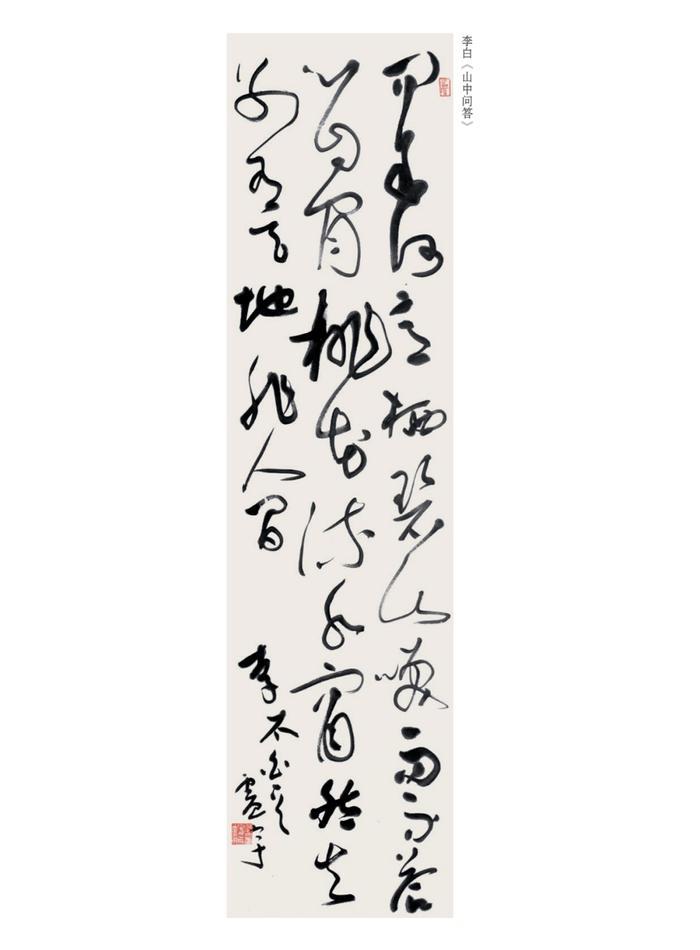 李白《山中问答》
問余何意栖碧山笑而不答
心自閒桃花流水窅然去
别有天地非人間
李太白